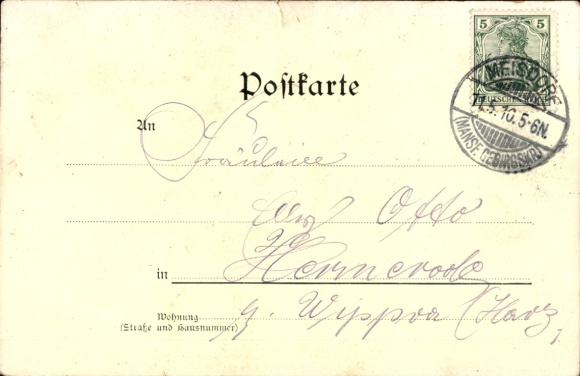 5 5
DEUTSCHES REICH
MEISDORF
10. 5-6N.
(MANSF. GEBIRGSKR.)
Postkarte
An
Fräulein
Otto
in Hermerode
b. Wippra (Harz)
Wohnung
(Straße und Hausnummer)